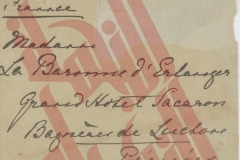 France
Madame
La Baronne d'Erlanger
Grand Hotel Sacaron
Bagnères de Luchon